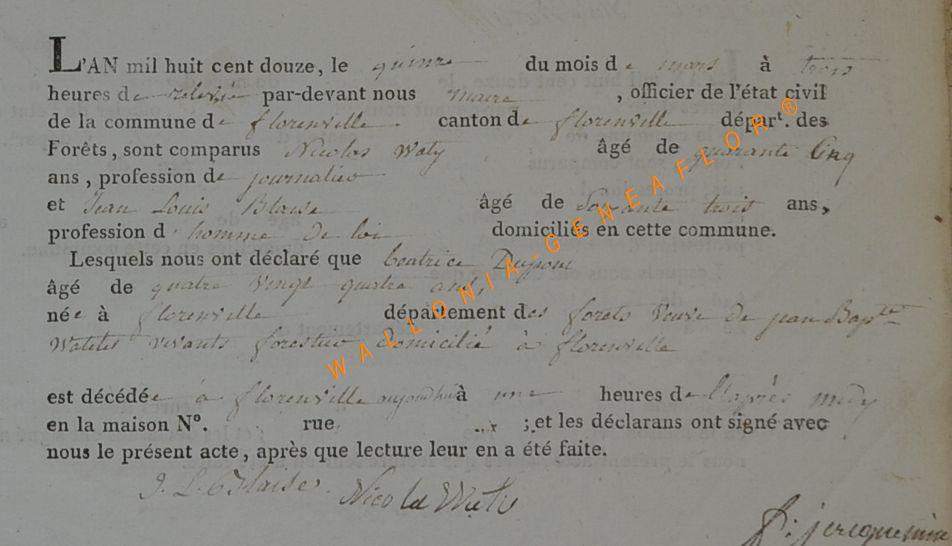 L'AN mil huit cent douze, le quinze du mois de mars à trois
heures de relevée par-devant nous maire, officier de l'état civil
de la commune de florenville canton de florenville départ. des
Forêts, sont comparus Nicolas Waty âgé de quarante Cinq
ans, profession de journalier
et Jean Louis Blaise âgé de Soixante trois ans,
profession d'homme de loi domiciliés en cette commune.
Lesquels nous ont déclaré que beatrice Dupont
âgé de quatre vingt quatre ans,
née à florenville département des forets veuve de jean Bapte
vivants forestier domicilié à florenville
est décédée à florenville aujourdhui à une heures de l'après midy
en la maison N°. rue ; et les déclarans ont signé avec
nous le présent acte, après que lecture leur en a été faite.
J. L. Blaise Nicolas
jacquemin
WALLONIA-GENEAFLOR®